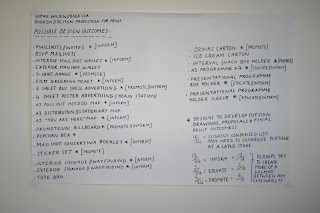 SOPHIE WILSON / BAGD L5A
OUGD504 / DESIGN PRODUCTION FOR PRINT
POSSIBLE DESIGN OUTCOMES:
· MAILSHOTS/INVITES * [INFORM]
· RSVP MAILSHOTS
· INTERIOR MAILSHOT WALLET * [INFORM]
· EXTERIOR MAILSHOT WALLET
· T-SHIRT RANGE * [PROMOTE]
· FILM SCREENING TICKET * [INFORM]
· 6 SHEET BUS SHELL ADVERTISING * [PROMOTE/INFORM]
· 4 SHEET POSTER ADVERTISING (TRAIN STATION)
· A3 PULL OUT HOTDOG MAP * [INFORM]
· A3 DISTRIBUTED/STATIONARY MAP
· A3 "YOU ARE HERE" MAP * [INFORM]
· PROMOTIONAL BILLBOARD * [PROMOTE/INFORM]
· POPCORN BOX *
· MAILSHOT CONCERTINA BOOKLET * [INFORM]
· STICKER SET * [PROMOTE]
· INTERIOR SIGNAGE/WAYFINDING * [INFORM]
· EXTERIOR SIGNAGE/WAYFINDING * [INFORM]
· TOTE BAG
· DRINKS CARTON * [PROMOTE]
· ICE CREAM CARTON
· INTERVAL SNACK BOX HOLDER * [PROMOTE]
· A5 PROGRAMME * [INFORM]
· PRESENTATIONAL PROGRAMME
BOX HOLDER * [EDUCATE/INFORM]
· PRESENTATIONAL PROGRAMME
HOLDER SLEEVE * [EDUCATE/INFORM]
* DESIGNS TO DEVELOP (OPTION
DRAWINGS, PROPOSALS & FINAL
PRINT OUTCOMES).
SLIGHTLY CONDENSED LIST
MAY NEED TO CONDENSE FURTHER
AT A LATER STAGE
= INFORM =
= EDUCATE =
= PROMOTE =
PERHAPS TRY
TO CREATE
MORE OF A
BALANCE
BETWEEN ALL
CATEGORIES